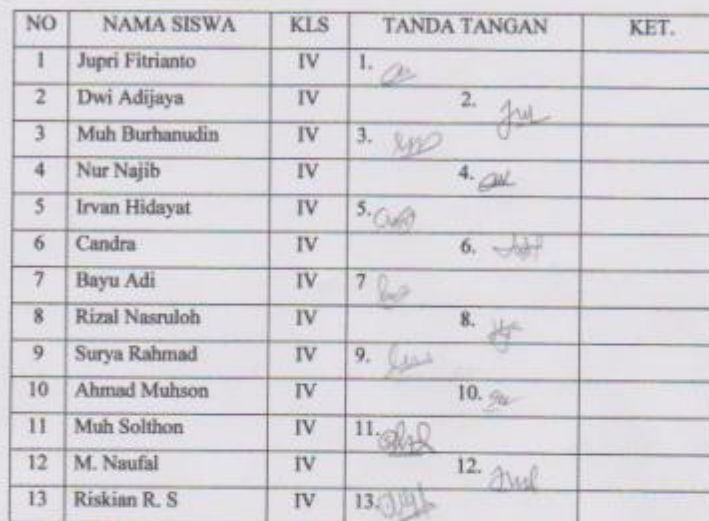 NO NAMA SISWA KLS TANDA TANGAN KET.
1 Jupri Fitrianto IV 1.
2 Dwi Adijaya IV 2.
3 Muh Burhanudin IV 3.
4 Nur Najib IV 4.
5 Irvan Hidayat IV 5.
6 Candra IV 6.
7 Bayu Adi IV 7
8 Rizal Nasruloh IV 8.
9 Surya Rahmad IV 9.
10 Ahmad Muhson IV 10.
11 Muh Solthon IV 11.
12 M. Naufal IV 12.
13 Riskian R. S IV 13.